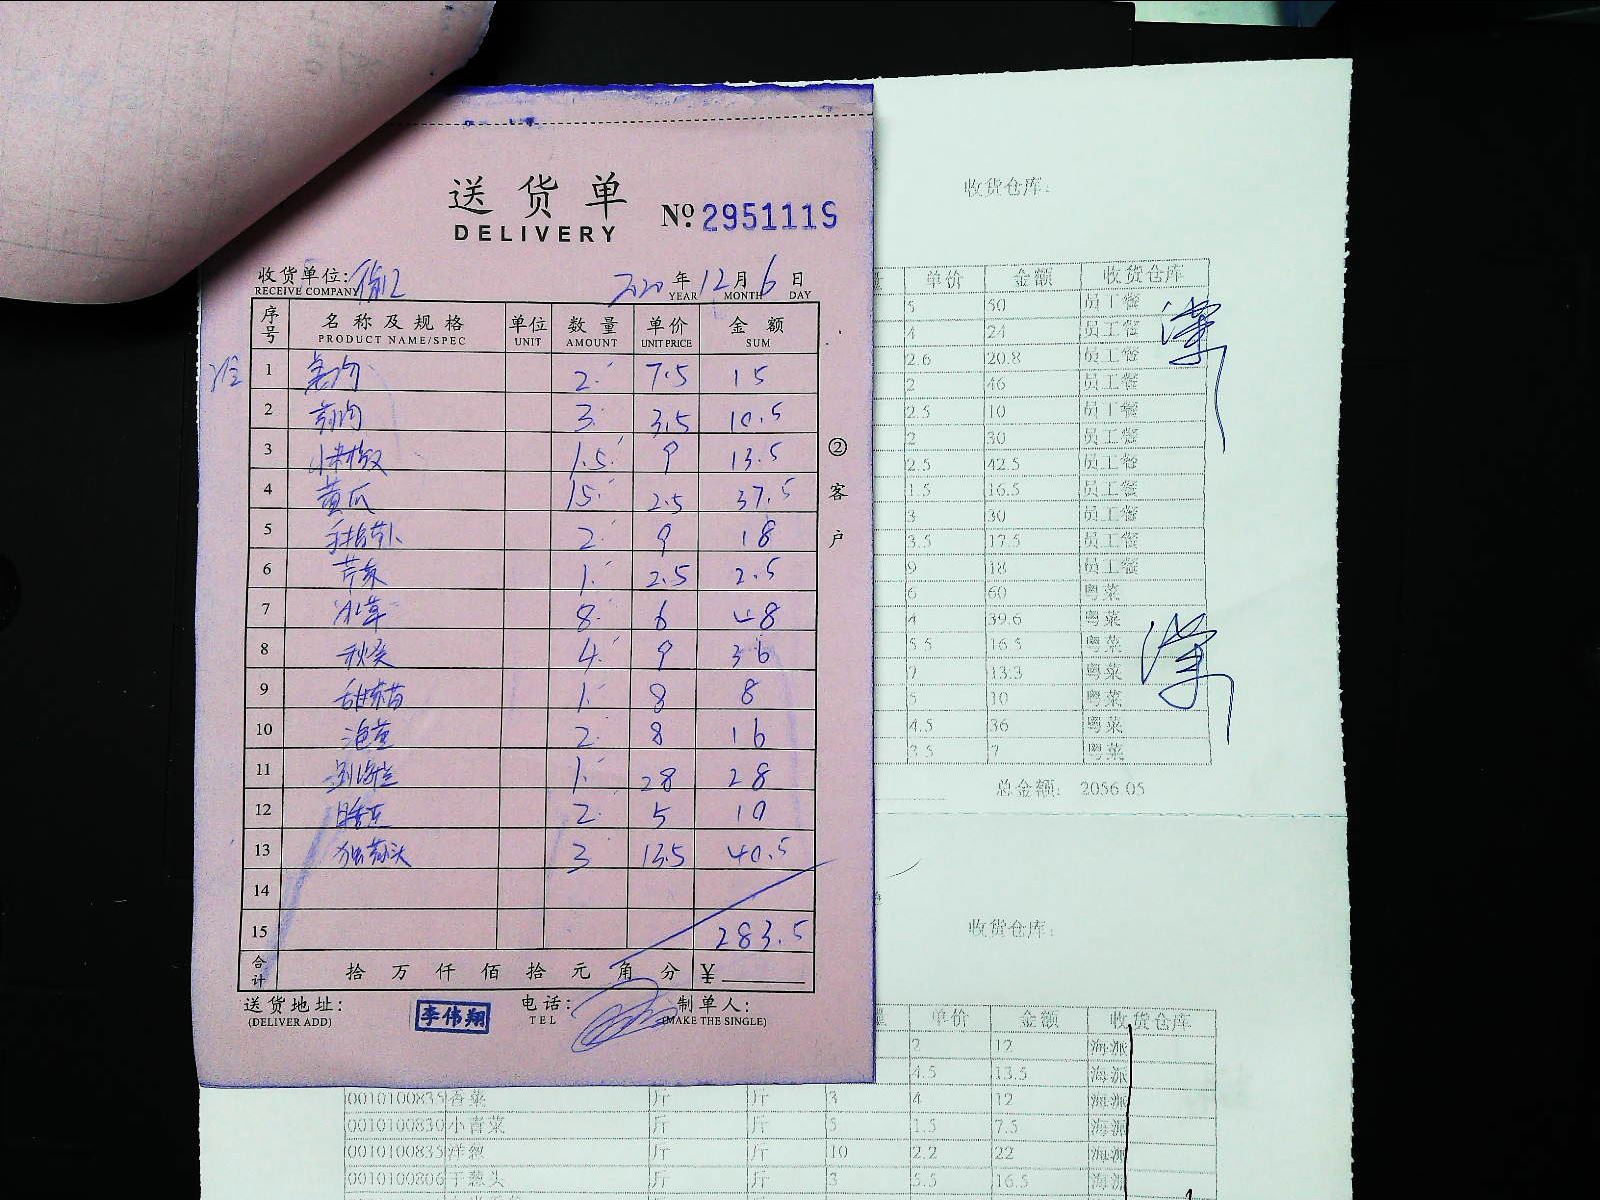 送货单
DELIVERY
No. 2951119
收货单位:
RECEIVE COMPANY
2020 年 12 月 6 日
YEAR MONTH DAY
序号 名称及规格 单位 数量 单价 金额
PRODUCT NAME/SPEC UNIT AMOUNT UNIT PRICE SUM
1 2 7.5 15
2 3 3.5 10.5
3 小米椒 1.5 9 13.5
4 黄瓜 15 2.5 37.5
5 手指萝卜 2 9 18
6 1 2.5 2.5
7 8 6 48
8 秋葵 4 9 36
9 1 8 8
10 2 8 16
11 1 28 28
12 2 5 10
13 3 13.5 40.5
14
15 283.5
合计 拾 万 仟 佰 拾 元 角 分 ¥
送货地址: 电话: 制单人:
(DELIVER ADD) TEL (MAKE THE SINGLE)
李伟翔
②客户
收货仓库:
单价 金额 收货仓库
5 50 员工餐
4 24 员工餐
2.6 20.8 员工餐
2 46 员工餐
2.5 10 员工餐
2 30 员工餐
2.5 42.5 员工餐
1.5 16.5 员工餐
3 30 员工餐
3.5 17.5 员工餐
9 18 员工餐
6 60 粤菜
4 39.6 粤菜
5.5 16.5 粤菜
7 13.3 粤菜
5 10 粤菜
4.5 36 粤菜
3.5 7 粤菜
总金额: 2056.05
收货仓库:
单价 金额 收货仓库
2 12 海派
4.5 13.5 海派
0010100835 香菜 斤 斤 3 4 12 海派
0010100830 小青菜 斤 斤 5 1.5 7.5 海派
0010100835 洋葱 斤 斤 10 2.2 22 海派
0010100806 干葱头 斤 斤 3 5.5 16.5 海派